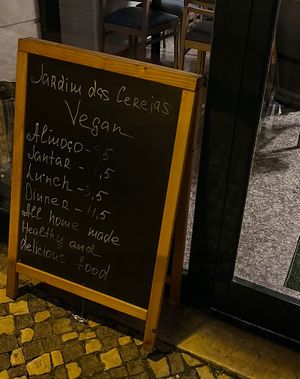 Jardim das Cerejas
Vegan
Almoço - 9,5
Jantar - ,5
Lunch - 9,5
Dinner - 11,5
All home made
Healthy and
delicious food